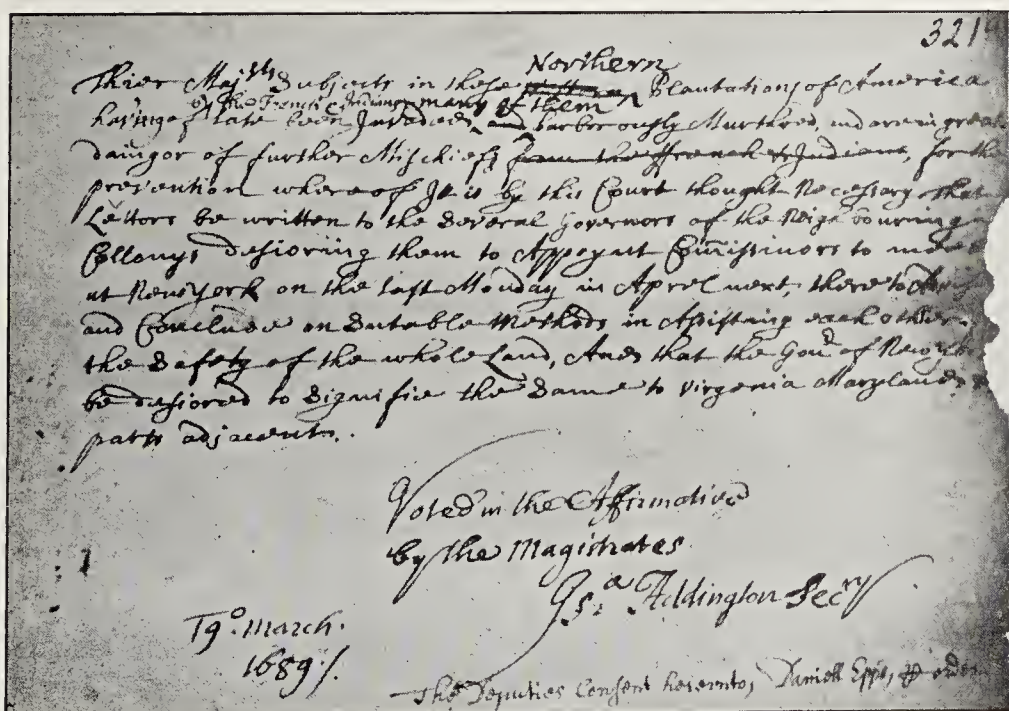 321
Northern
Thier Maj^sts Subjects in these Plantations of America
by the French & Indians many of them
haveinge of late been Invaded, and barberously Murthred, and are in great
daingor of further Mischiefs from the ffrench & Indians, for the
prevention whereof It is by this Court thought Necessary, that
Lettors be written to the Several Governors of the Neighbouring
Collonys desioring them to Appoynt Comissinors to meet
at New York on the last Monday in Aprel next, there to
and Conclude on Sutable Methods in Assisting each other
the Safety of the whole Land, And that the Gou^r of New York
be desiored to Signifie the Same to Virginia Maryland &
parts adjacent.
Voted in the Affirmative
by the Magistrates
Is^a Addington Sec^ry
19^o. March.
1689/.
The Deputies Consent hereunto, Daniell Epps, p^r order